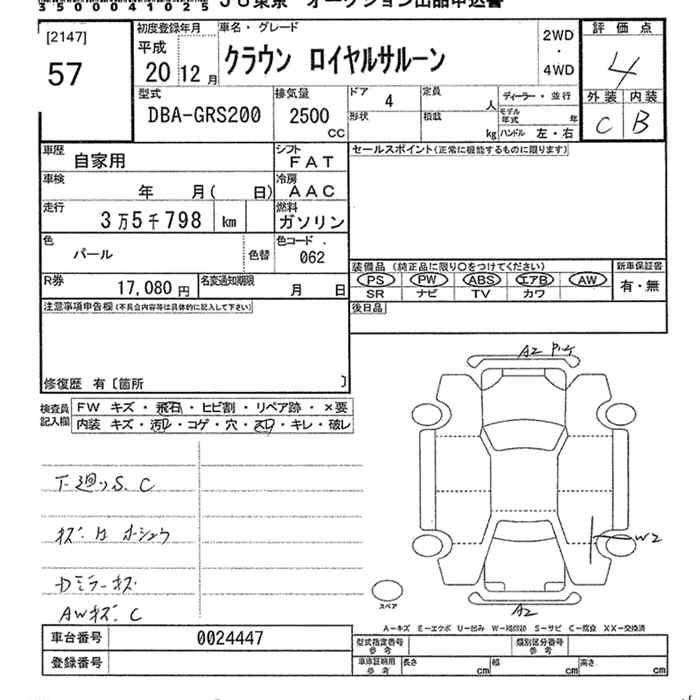 3500041025 JU東京 オークション出品申込書
[2147] 初度登録年月 車名・グレード 2WD 評価点
57 平成 クラウン ロイヤルサルーン ・ 4
20 12月 4WD 外装 内装
型式 排気量 ドア 4 定員 人 ディーラー・並行 C B
DBA-GRS200 2500 CC 形状 積載 kg モデル年式 年
ハンドル 左・右
車歴 自家用 シフト FAT セールスポイント(正常に機能するものに限ります)
車検 年 月( 日) 冷房 AAC
走行 3万5千798 km 燃料 ガソリン
色 パール 色替 色コード 062
装備品 (純正品に限り○をつけてください) 新車保証書
R券 17,080円 名変通知期限 月 日 PS PW ABS エアB AW 有・無
SR ナビ TV カワ
注意事項申告欄(不具合内容等は具体的に記入して下さい) 後日品
修復歴 有〔箇所 〕
検査員 FW キズ・飛石・ヒビ割・リペア跡・×要
記入欄 内装 キズ・汚レ・コゲ・穴・スレ・キレ・破レ
A2
下廻りS.C
W2
Dミラーキズ
AWキズ.C
スペア
A2
A-キズ E-エクボ U-凹み W-補修跡 S-サビ C-腐食 XX-交換済
車台番号 0024447 型式指定番号 参考 類別区分番号 参考
登録番号 車庫証明用 参考 長さ cm 幅 cm 高さ cm